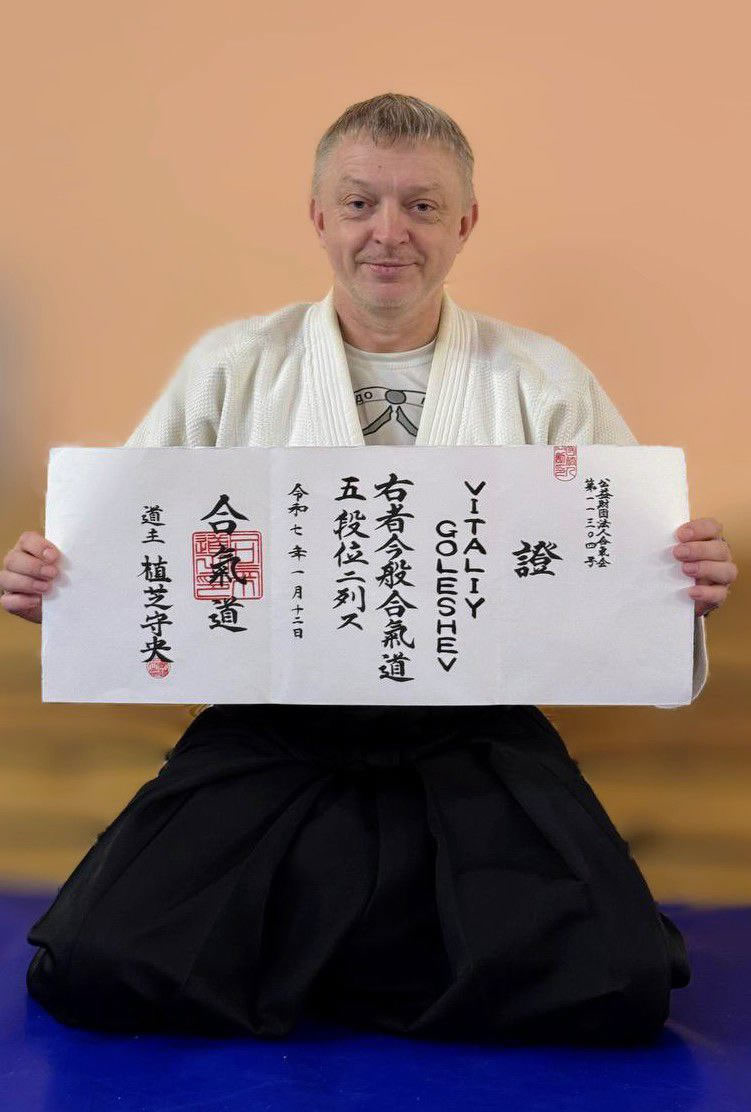 公益財団法人合気会
第一一三〇四号
證
VITALIY
GOLESHEV
右者今般合氣道
五段位ニ列ス
令和七年一月十二日
合氣道
道主 植芝守央